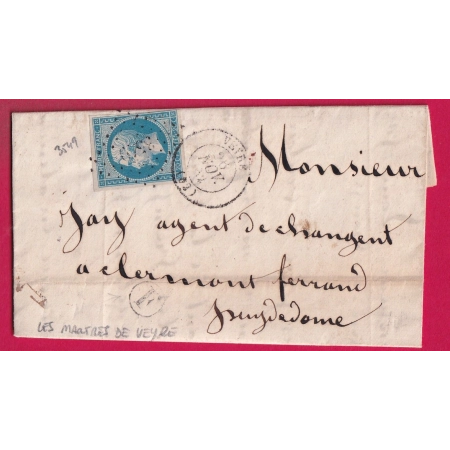 3549
VEYRE
NOV
Monsieur
Jay agent de changent
a clermont ferrand
puydedome
LES MARTRES DE VEYRE